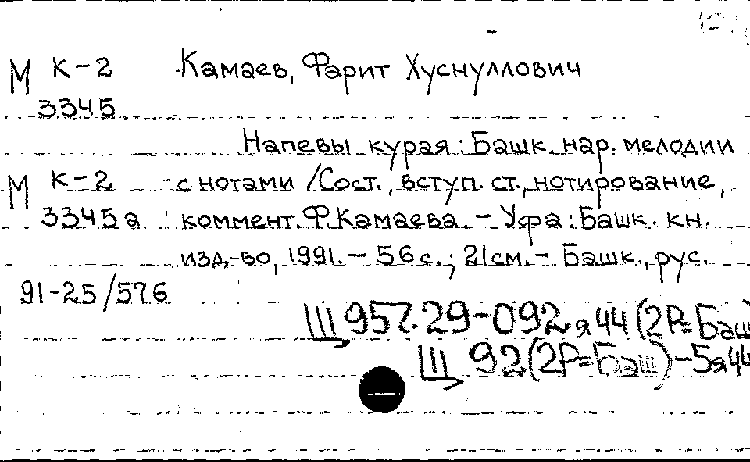 М К-2 Камаев, Фарит Хуснуллович
3345
Напевы курая: Башк. нар. мелодии
М К-2 с нотами / Сост., вступ. ст., нотирование,
3345а коммент. Ф. Камаева. - Уфа: Башк. кн.
изд-во, 1991. - 56 с.; 21 см. - Башк., рус.
91-25/576
Ш 957.29-092.я44(2Р=Баш
Ш 92(2Р=Баш)-5я44